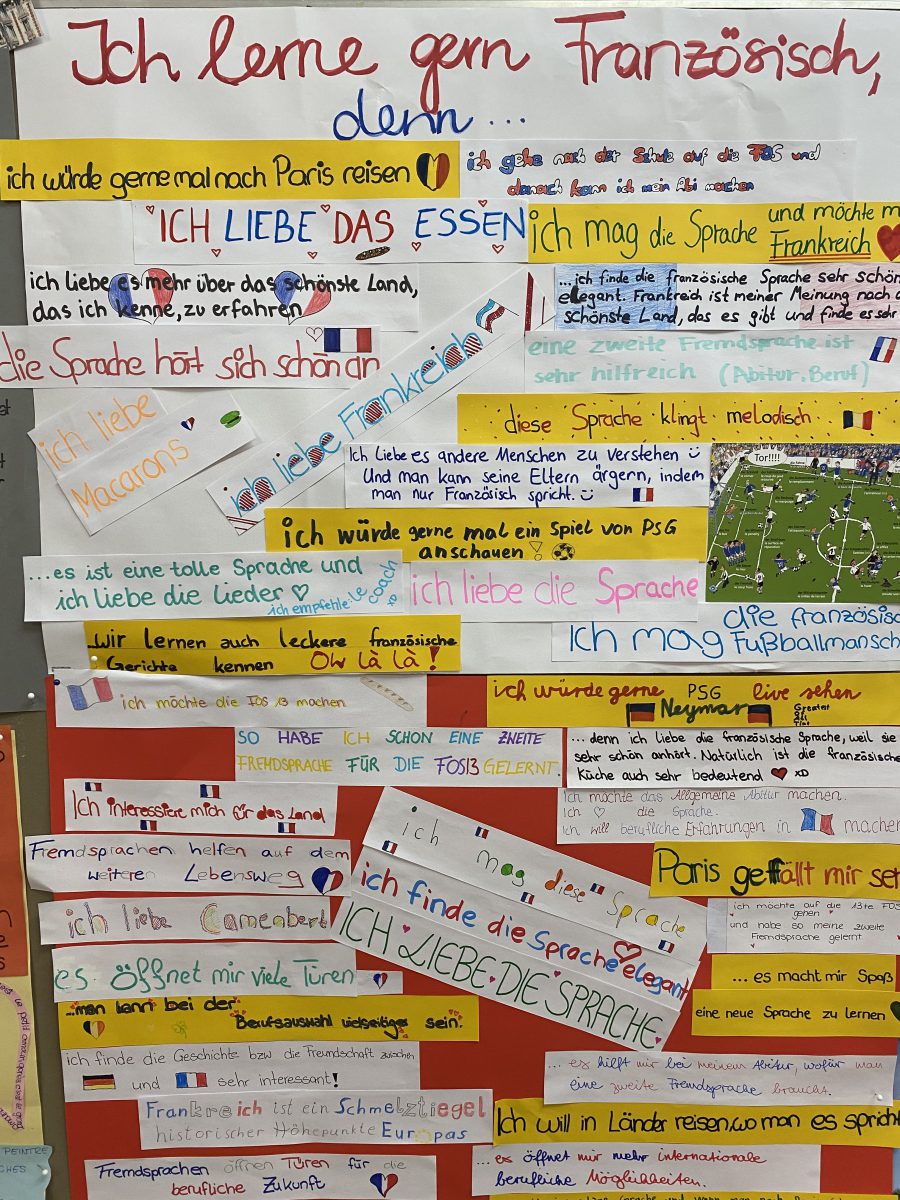 Ich lerne gern Französisch,
denn...
ich würde gerne mal nach Paris reisen
ich gehe nach der Schule auf die FOS und
danach kann ich mein Abi machen
ICH LIEBE DAS ESSEN
ich mag die Sprache und möchte
Frankreich
ich liebe es mehr über das schönste Land,
das ich kenne, zu erfahren
...ich finde die französische Sprache sehr schön
elegant. Frankreich ist meiner Meinung nach
schönste Land, das es gibt und finde es sehr
die Sprache hört sich schön an
ich liebe Frankreich
eine zweite Fremdsprache ist
sehr hilfreich (Abitur, Beruf)
ich liebe
Macarons
diese Sprache klingt melodisch.
Ich Liebe es andere Menschen zu verstehen
Und man kann seine Eltern ärgern, indem
man nur Französisch spricht.
Tor!!!!
ich würde gerne mal ein Spiel von PSG
anschauen!
...es ist eine tolle Sprache und
ich liebe die Lieder
ich empfehle: le coach xD
ich liebe die Sprache
Ich mag die französis
Fußballmansch
...wir lernen auch leckere französische
Gerichte kennen Oh là là!
ich möchte die FOS 13 machen
ich würde gerne PSG live sehen
Neymar Greatest
All
Time
SO HABE ICH SCHON EINE ZWEITE
FREMDSPRACHE FÜR DIE FOS13 GELERNT.
... denn ich liebe die französische Sprache, weil sie
sehr schön anhört. Natürlich ist die französische
Küche auch sehr bedeutend xD
Ich interessiere mich für das Land
Ich möchte das Allgemeine Abitur machen.
Ich die Sprache.
Ich will berufliche Erfahrungen in machen
Fremdsprachen helfen auf dem
weiteren Lebensweg
ich mag diese Sprache
Paris gefällt mir seh
ich finde die Sprache elegant
ich liebe Camenbert
ich möchte auf die 13te FOS
gehen
und habe so meine zweite
Fremdsprache gelernt
ICH LIEBE DIE SPRACHE
es öffnet mir viele Türen
... es macht mir Spaß
eine neue Sprache zu lernen
...man kann bei der
Berufsauswahl vielseitiger sein.
ich finde die Geschichte bzw die Freundschaft zwischen
und sehr interessant!
... es hilft mir bei meinem Abitur, wofür man
eine zweite Fremdsprache braucht.
Frankreich ist ein Schmelztiegel
historischer Höhepunkte Europas
Ich will in Länder reisen, wo man es spricht
Fremdsprachen öffnen Türen für die
berufliche Zukunft
...es öffnet mir mehr internationale
berufliche Möglichkeiten.